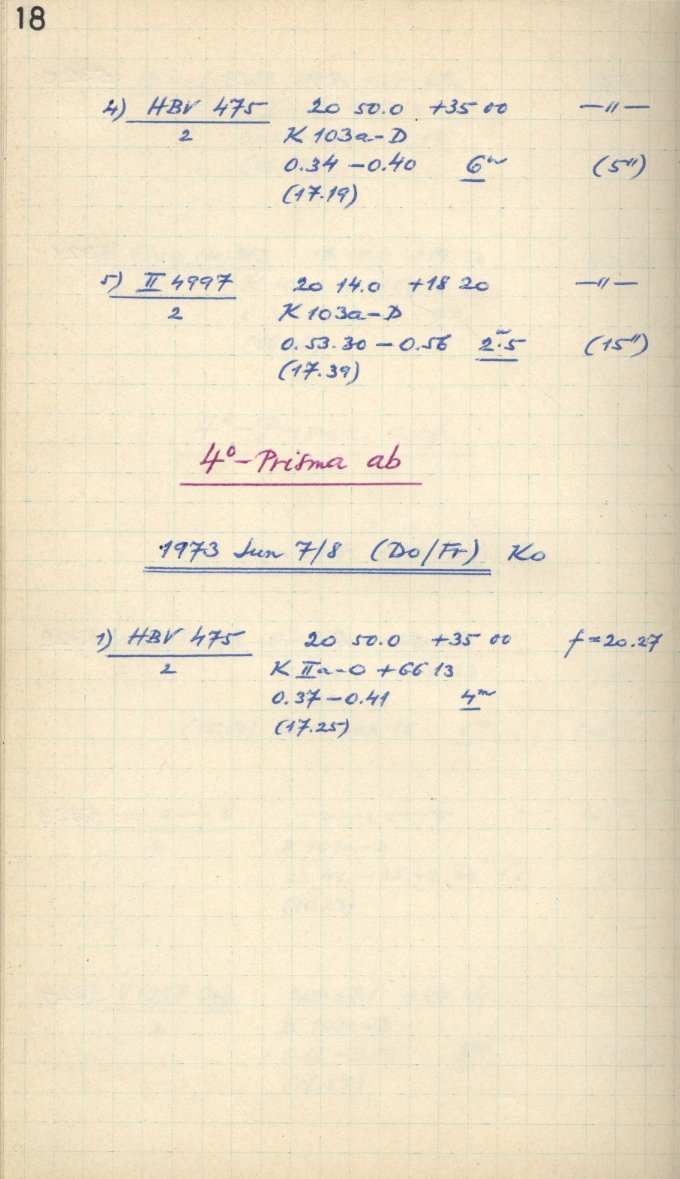 18
4) HBV 475 20 50.0 +35 00 —"—
2 K 103a-D
0.34 - 0.40 6ᵐ (5")
(17.19)
5) II 4997 20 14.0 +18 20 —"—
2 K 103a-D
0.53.30 - 0.56 2ᵐ.5 (15")
(17.39)
4°-Prisma ab
1973 Jun 7/8 (Do/Fr) Ko
1) HBV 475 20 50.0 +35 00 f = 20.27
2 K IIa-O + GG 13
0.37 - 0.41 4ᵐ
(17.25)